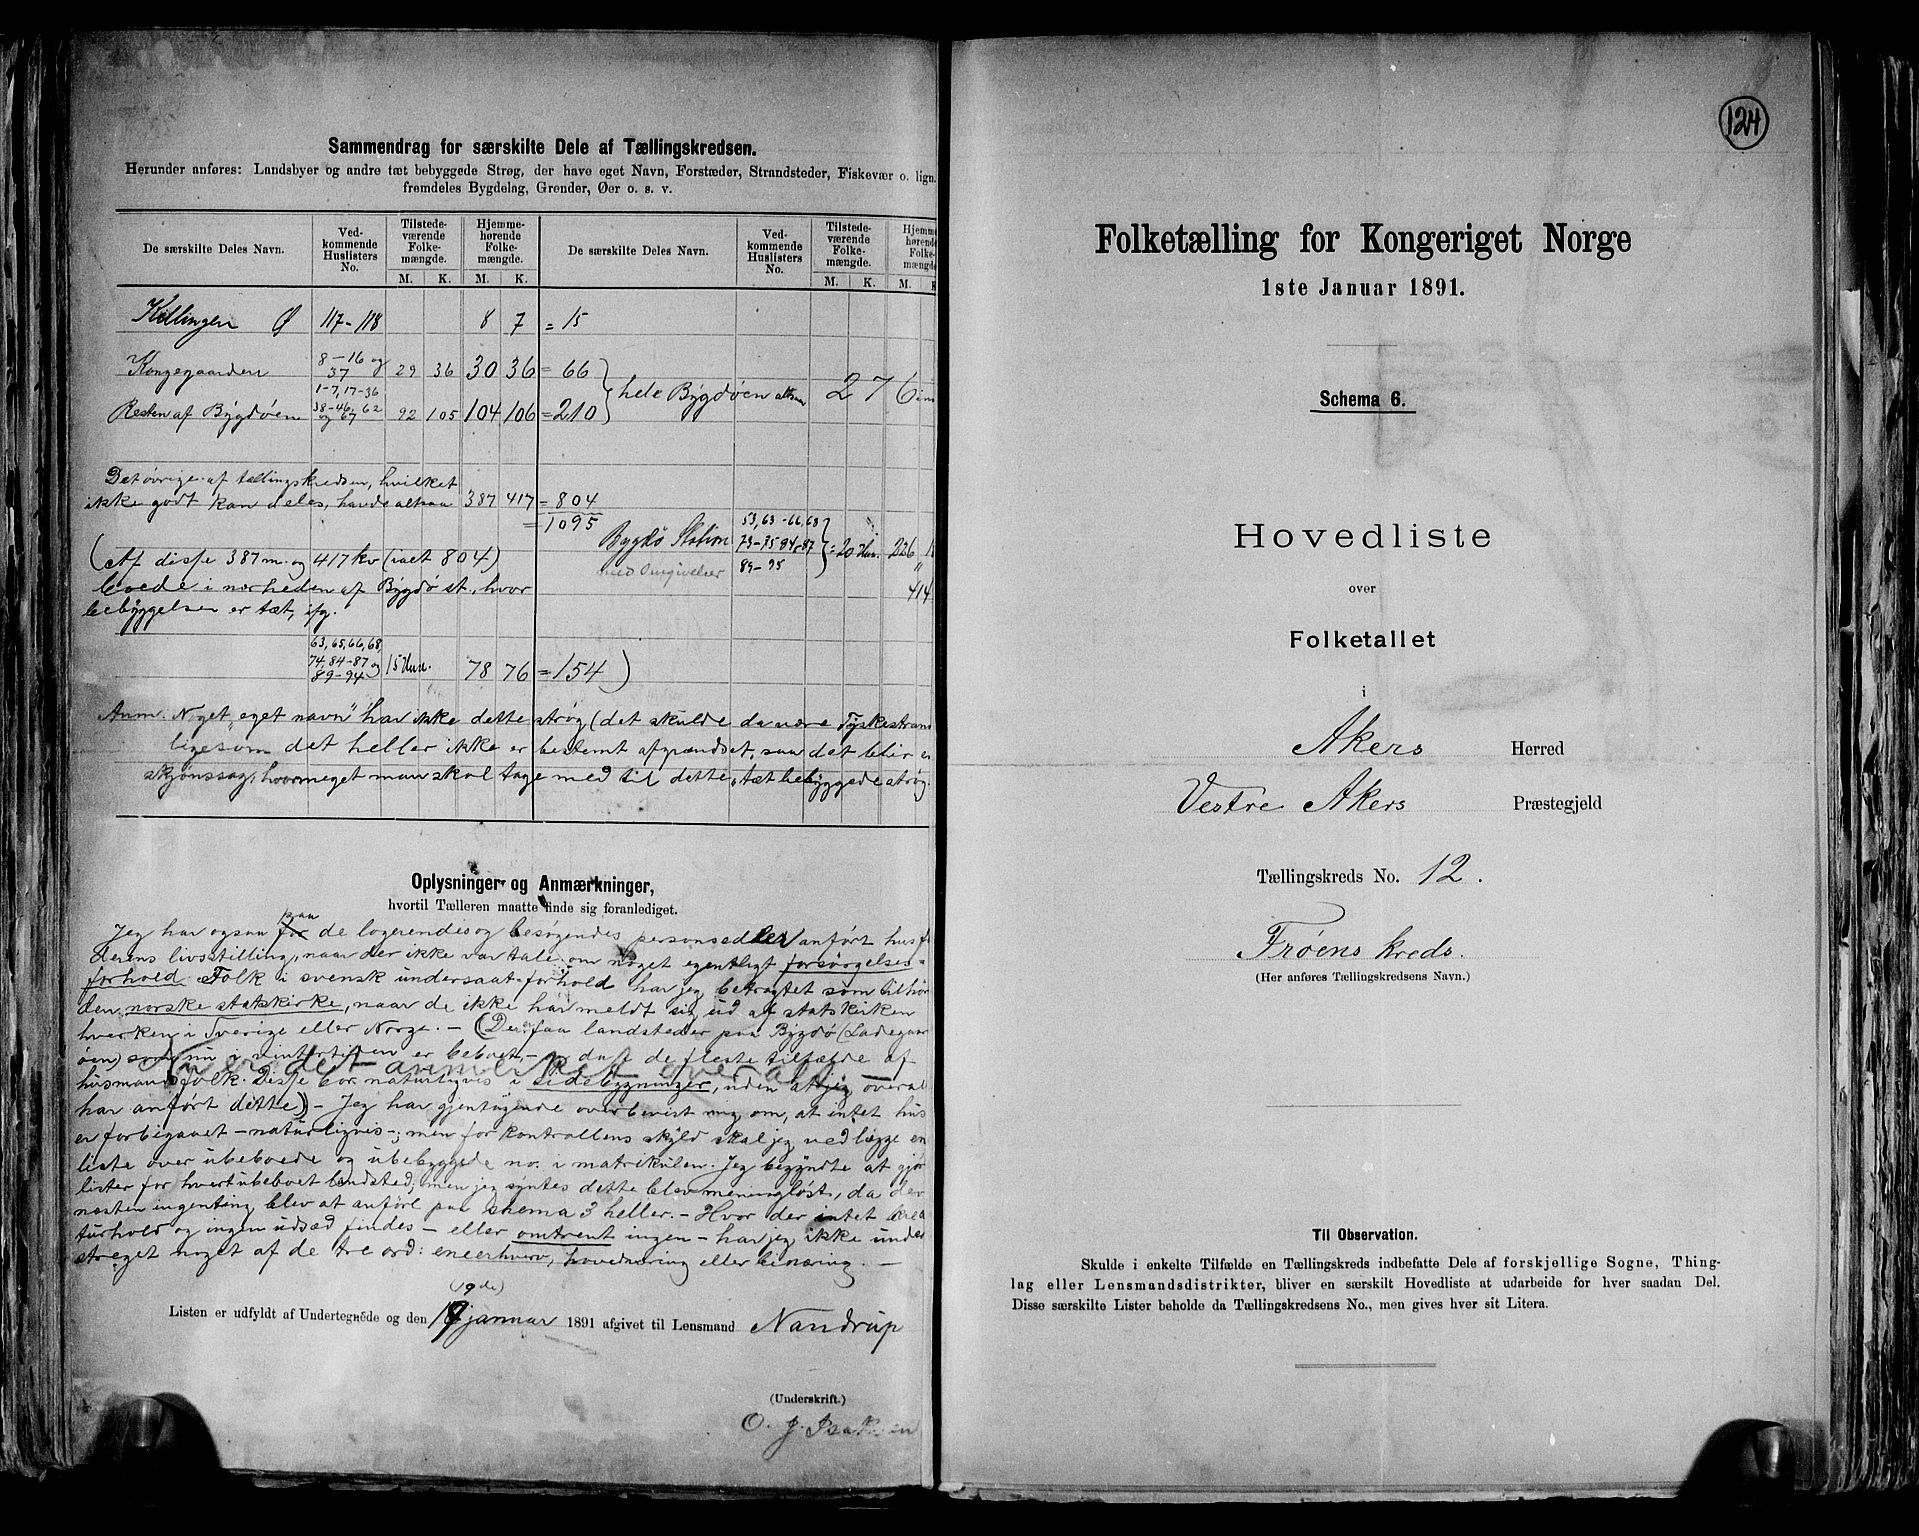 Sammendrag for særskilte Dele af Tællingskredsen.
Herunder anføres: Landsbyer og andre tæt bebyggede Strøg, der have eget Navn, Forstæder, Strandsteder, Fiskevær o. lign.
fremdeles Bygdelag, Grender, Øer o. s. v.
De særskilte Deles Navn. Ved-kommende Huslisters No. Tilstede-værende Folke-mængde. Hjemme-hørende Folke-mængde. De særskilte Deles Navn. Ved-kommende Huslisters No. Tilstede-værende Folke-mængde. Hjemme-hørende Folke-mængde
M. K. M. K. M. K. M. K
Killingen Ø 117-118 8 7 = 15
Kongegaarden 8-16 og 37 29 36 30 36 = 66
Resten af Bygdøen 1-7, 17-36 38-46, 62 og 67 92 105 104 106 = 210 } hele Bygdøen altsaa 276
Det øvrige af tællingskredsen, hvilket
ikke godt kan deles, havde altsaa 387 417 = 804
= 1095
Bygdø Station med Omgivelser 53, 63-66, 68 73-75 84-87 89-95 } = 20 Hus. 226
414
(Af disse 387 m. og 417 kv (ialt 804)
boede i nærheden af Bygdø st., hvor
bebyggelsen er tæt, ifg.
63, 65, 66, 68, 74, 84-87 og 89-94 15 Hus. 78 76 = 154)
Anm. Noget "eget navn" har ikke dette strøg (det skulde da være Tyskestran
ligesom det heller ikke er bestemt afgrændset, saa det blir e
skjønssag, hvormeget man skal tage med til dette "tæt bebyggede strøg.
Oplysninger og Anmærkninger,
hvortil Tælleren maatte finde sig foranlediget.
Jeg har ogsaa paa de logerendes og besøgendes personsedler anført husf
derens livsstilling, naar der ikke var tale om noget egentligt forsørgelses-
forhold. Folk i svensk undersaat-forhold har jeg betragtet som tilhør
den norske statskirke, naar de ikke har meldt sig ud af statskirken
hverken i Sverige eller Norge. - (De faa landsteder paa Bygdø (Ladegaar
øen) som nu i vintertiden er beboet, - er da i de fleste tilfælde af
husmandsfolk. Disse bor naturligvis i sidebygninger, uden at jeg overal
har anført dette) - Jeg har gjentagende overbevist mig om, at intet hus
er forbigaaet - naturligvis -; men for kontrollens skyld skal jeg vedlægge en
liste over ubeboede og ubebyggede no. i matrikulen. Jeg begyndte at gjør
lister for hvert ubeboet landsted; men jeg syntes dette blev meningsløst, da der
næsten ingenting blev at anføre paa shema 3 heller. - Hvor der intet krea
turhold og ingen udsæd findes - eller omtrent ingen - har jeg ikke under
streget noget af de tre ord: eneerhverv, hovednæring eller binæring. -
(19de)
Listen er udfyldt af Undertegnede og den 19 januar 1891 afgivet til Lensmand Nandrup
(Underskrift.)
O. J. Isaksen
124
Folketælling for Kongeriget Norge
1ste Januar 1891.
Schema 6.
Hovedliste
over
Folketallet
i
Akers Herred
Vestre Akers Præstegjeld
Tællingskreds No. 12.
Frøens kreds.
(Her anføres Tællingskredsens Navn.)
Til Observation.
Skulde i enkelte Tilfælde en Tællingskreds indbefatte Dele af forskjellige Sogne, Thing-
lag eller Lensmandsdistrikter, bliver en særskilt Hovedliste at udarbeide for hver saadan Del.
Disse særskilte Lister beholde da Tællingskredsens No., men gives hver sit Litera.